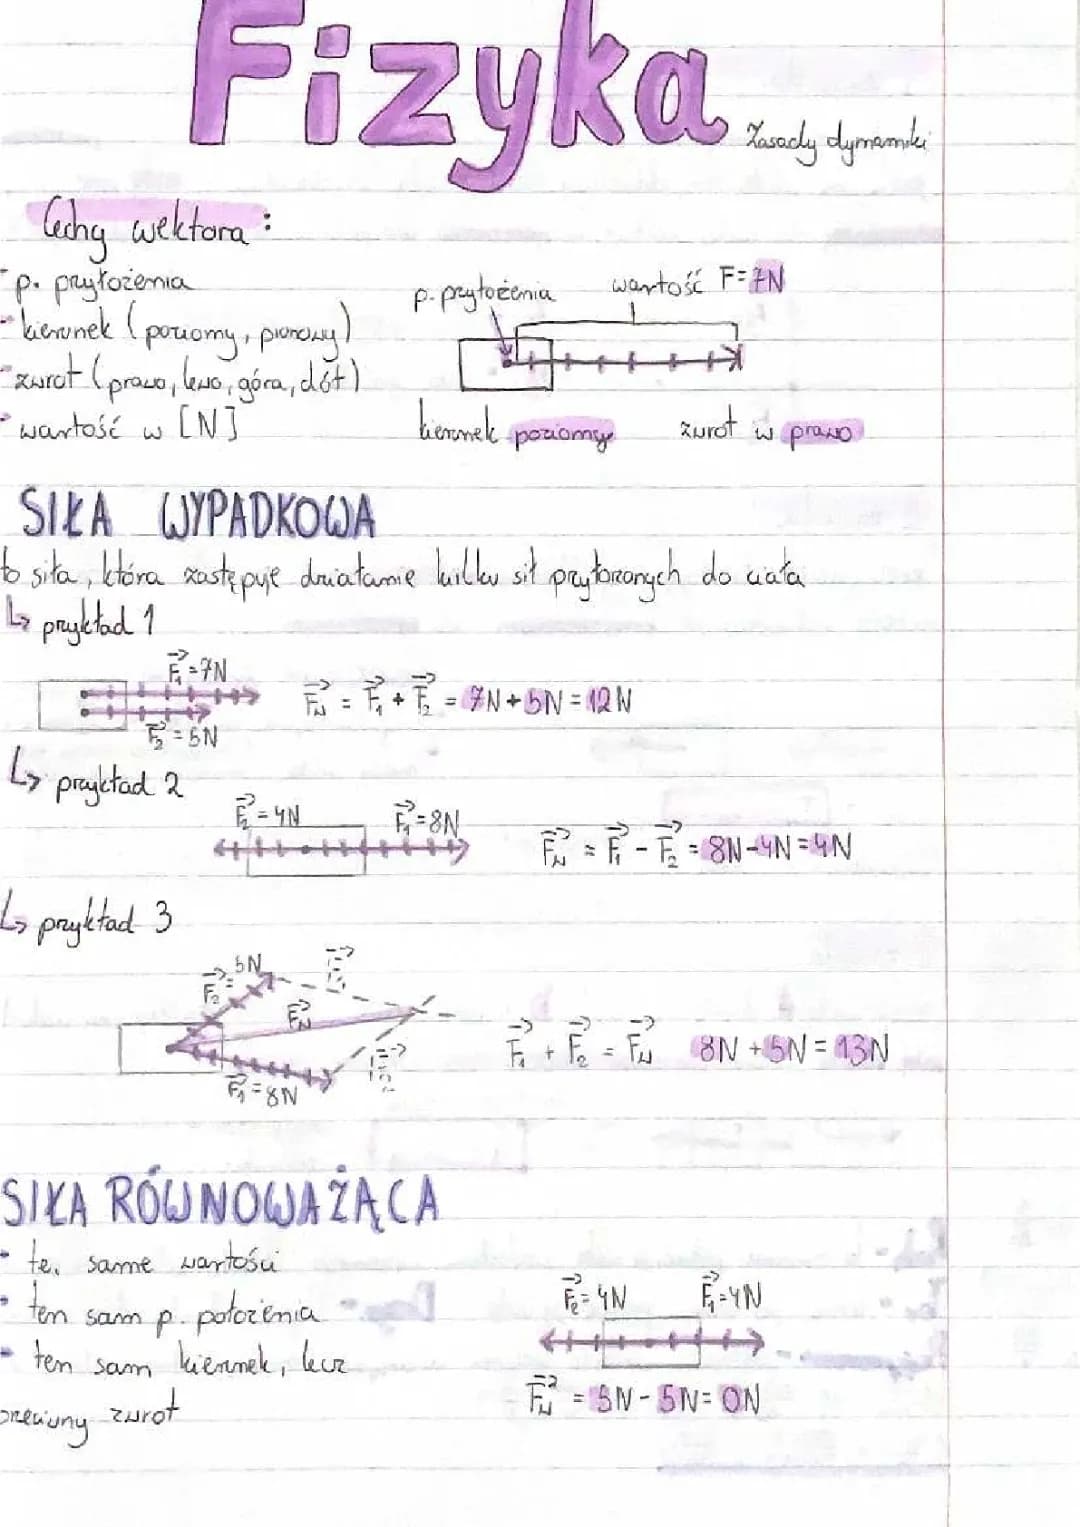 Fizyka
Zasady dynamiki
Cechy wektora:
- p. przyłożenia
- kierunek (poziomy, pionowy)
- zwrot (prawo, lewo, góra, dół)
- wartość w [N]
p. przyłożenia
wartość F=7N
kierunek poziomy
zwrot w prawo
SIŁA WYPADKOWA
to siła, która zastępuje działanie kilku sił przyłożonych do ciała
↳ przykład 1
F₁=7N
F₂=5N
F_W = F₁ + F₂ = 7N+5N=12N
↳ przykład 2
F₂=4N
F₁=8N
F_W = F₁ - F₂ = 8N-4N=4N
↳ przykład 3
F₂=5N
F_W
F₁=8N
F₁ + F₂ = F_W 8N+5N=13N
SIŁA RÓWNOWAŻĄCA
• te same wartości
• ten sam p. położenia
- ten sam kierunek, lecz
przeciwny zwrot
F₂=4N
F₁=4N
F_W = 5N-5N=0N